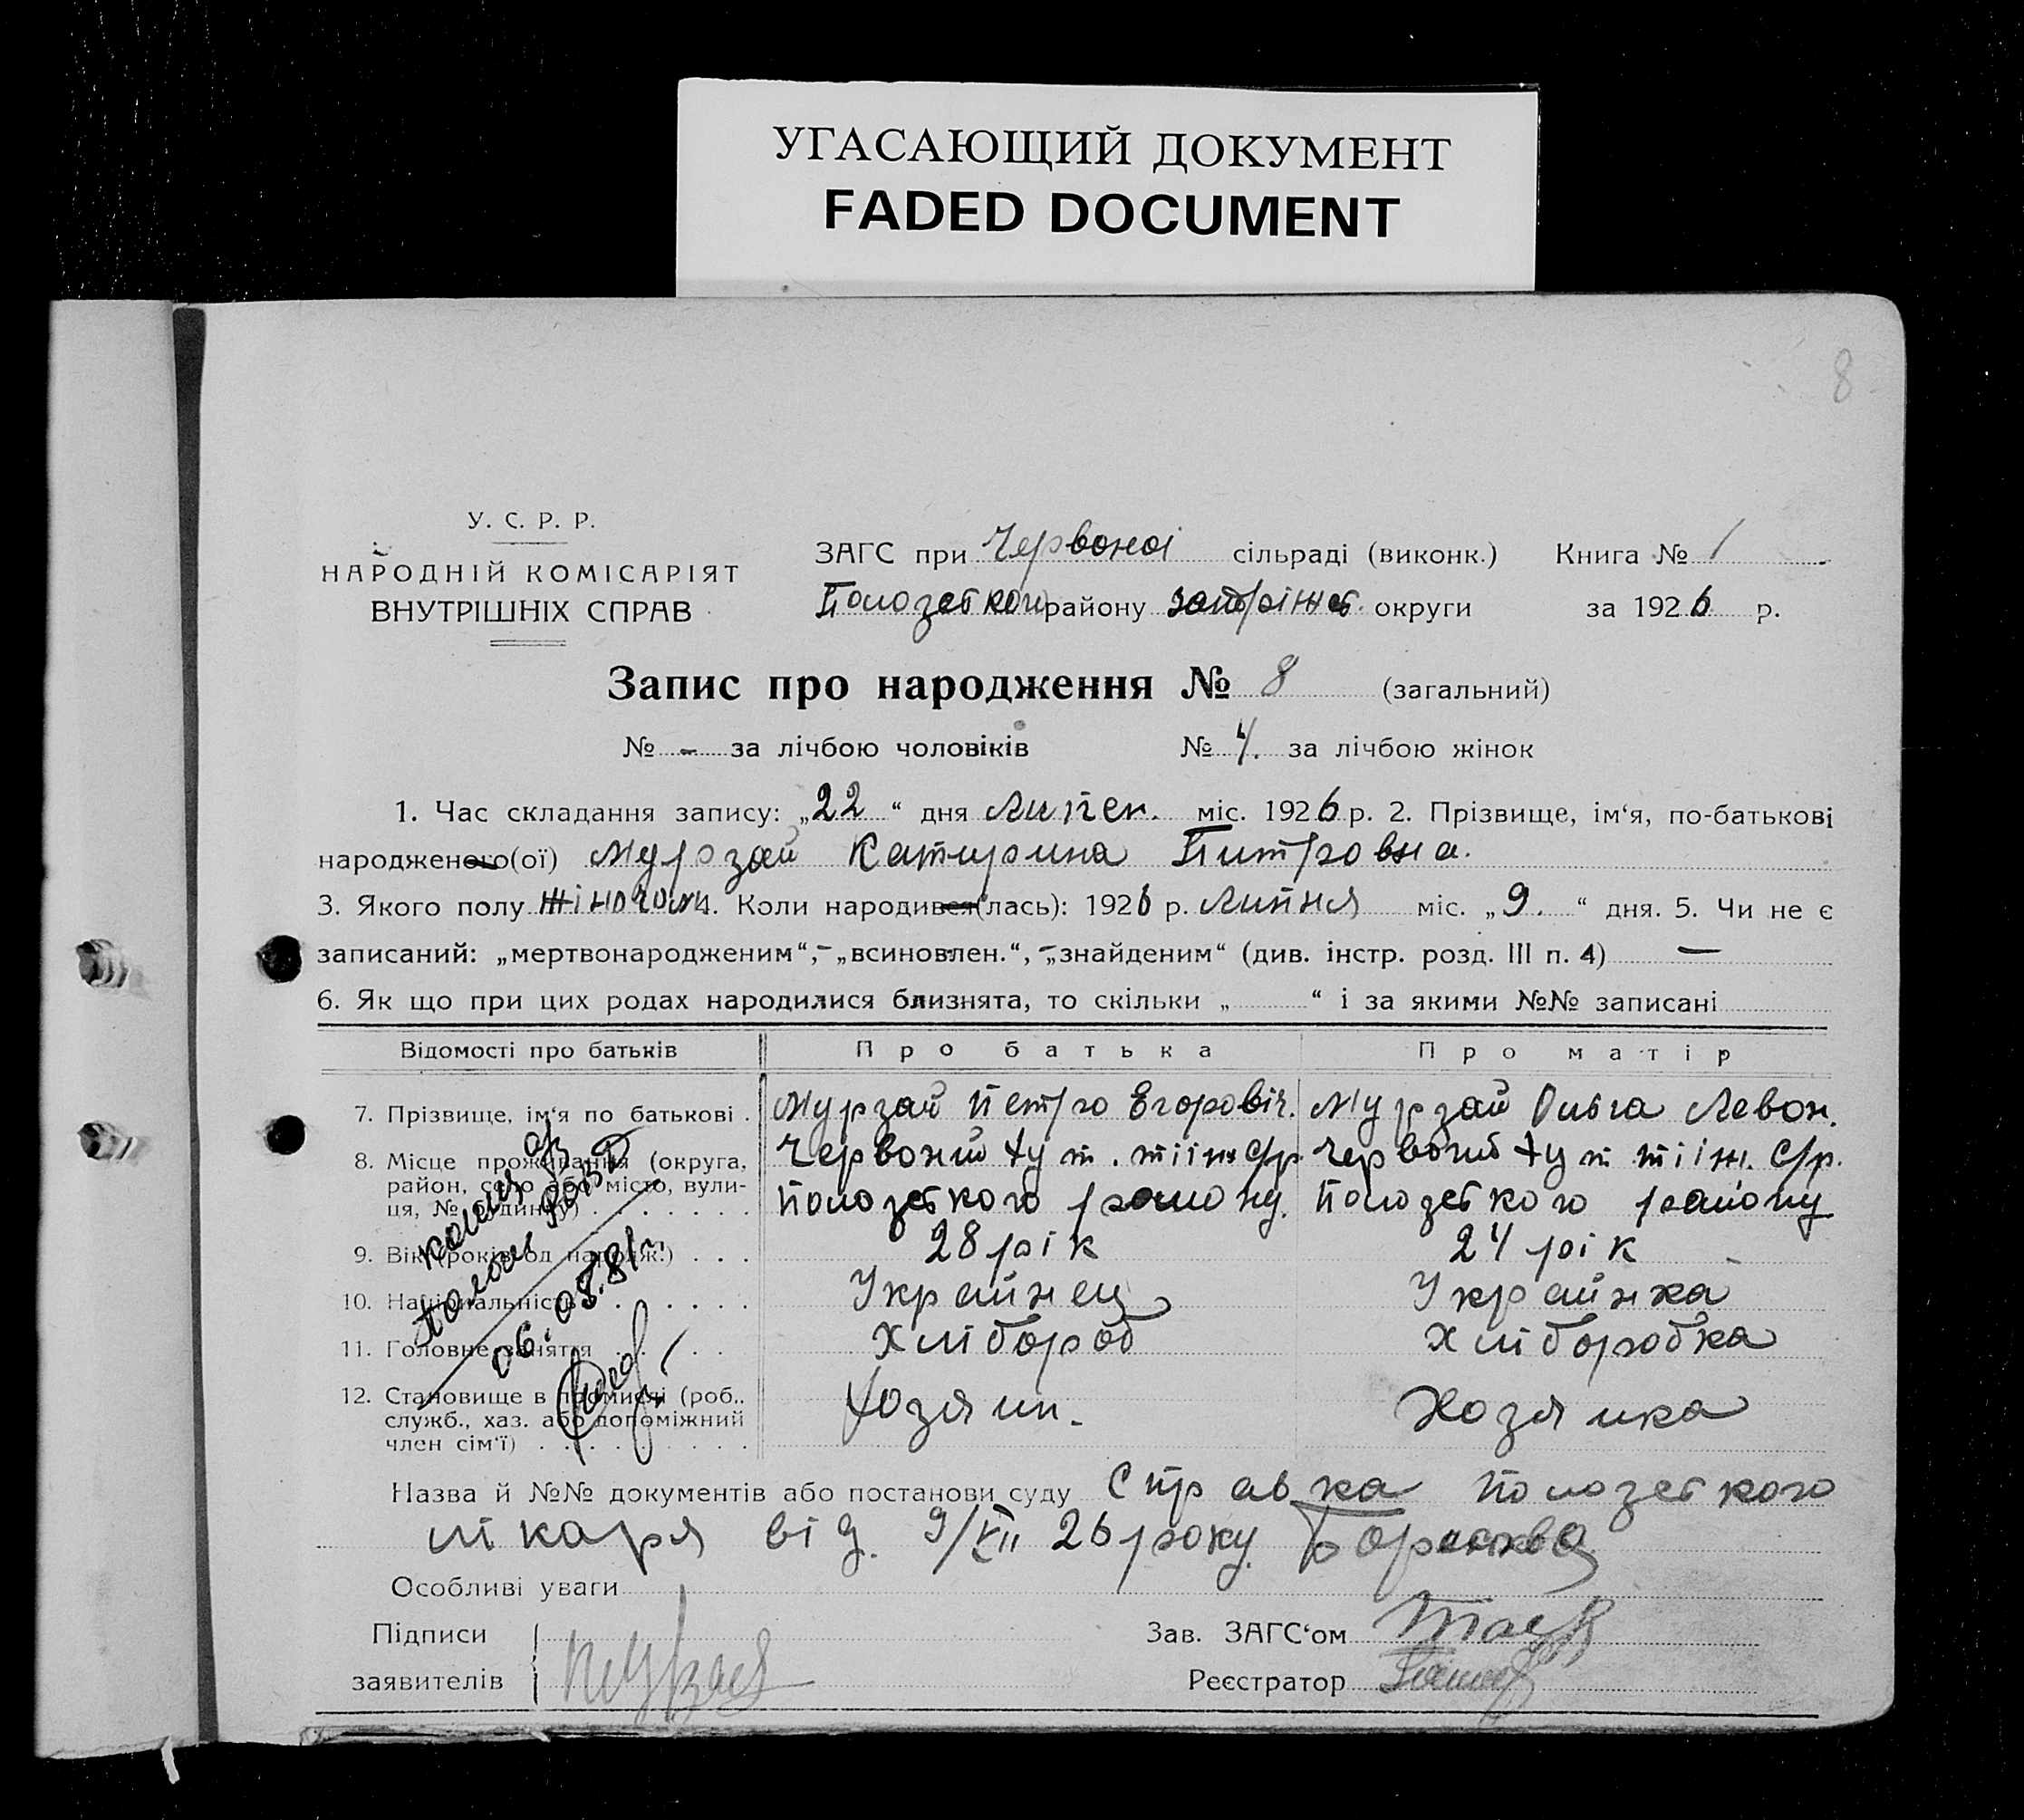 УГАСАЮЩИЙ ДОКУМЕНТ
FADED DOCUMENT
8
У. С. Р. Р.
НАРОДНІЙ КОМІСАРІЯТ
ВНУТРІШНІХ СПРАВ
ЗАГС при Червоної сільраді (виконк.) Книга № 1
Пологского району запоріжс. округи за 1926 р.
Запис про народження № 8 (загальний)
№ - за лічбою чоловіків № 4. за лічбою жінок
1. Час складання запису: „22“ дня Липен. міс. 1926 р. 2. Прізвище, ім‘я, по-батькові
народженого(ої) Мурзай Катирина Питровна.
3. Якого полу жіночом 4. Коли народився(лась): 1926 р. Липня міс. „9.“ дня. 5. Чи не є
записаний: „мертвонародженим“,- „всиновлен.“, -„знайденим“ (див. інстр. розд. III п. 4) —
6. Як що при цих родах народилися близнята, то скільки „ “ і за якими №№ записані
Відомості про батьків Про батька Про матір
7. Прізвище, ім‘я по батькові . Мурзай Петро Егоровіч. Мурзай Ольга Левон.
8. Місце проживання (округа, Червоний хут. с/р Червоний хут с/р.
район, село або місто, вули- району. району
ця, № будинку)
9. Вік (років од народж.) . . . 28 рік 24 рік
10. Національність Украйнец Украйнка
11. Головне заняття Хлібороб хліборобка
12. Становище в промислі (роб., Хозяин. Хозяика
служб., хаз. або допоміжний
член сім‘ї)
копия
06.08.81г.
Назва й №№ документів або постанови суду Справка
лікаря від. 9/VII 26 року.
Особливі уваги
Підписи
заявителів
Зав. ЗАГС‘ом
Реєстратор